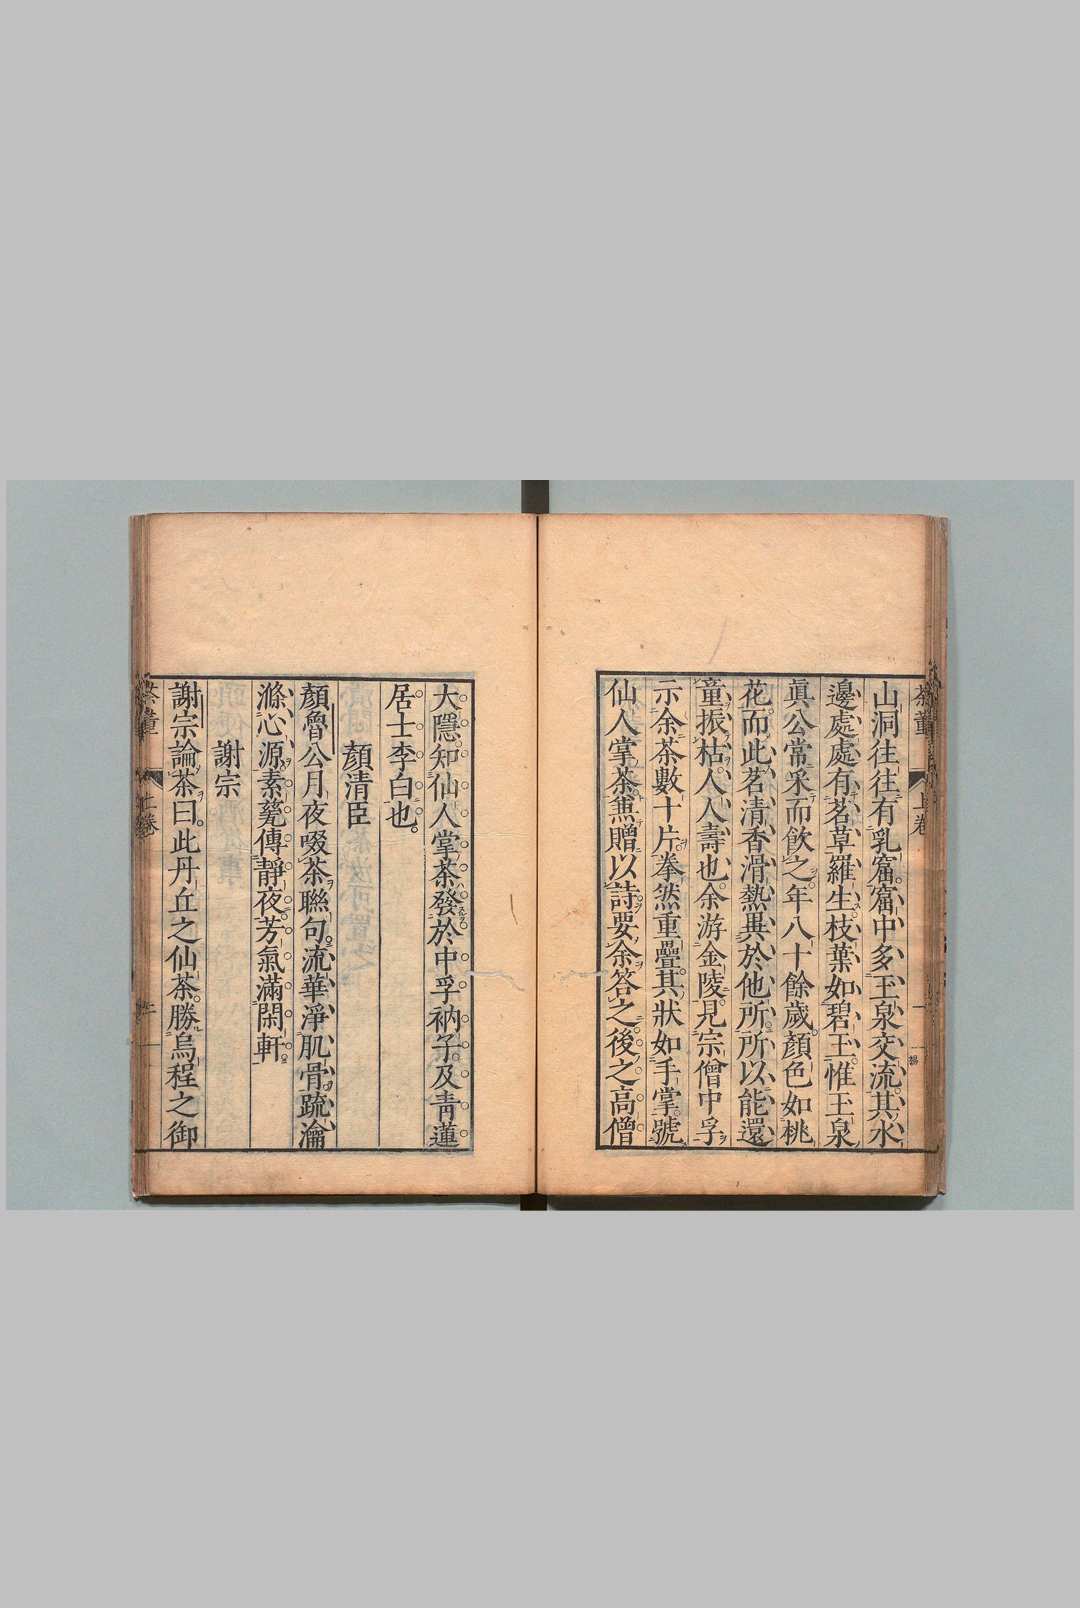 茶董 上卷 一
山洞往往有乳窟窟中多玉泉交流其水
邊處處有茗草羅生枝葉如碧玉惟玉泉
眞公常采而飲之年八十餘歲顏色如桃
花而此茗清香滑熱異於他所所以能還
童振枯人人壽也余游金陵見宗僧中孚
示余茶數十片拳然重疊其狀如手掌號
仙人掌茶兼贈以詩要余答之後之高僧
大隱知仙人掌茶發於中孚衲子及青蓮
居士李白也
顏清臣
顏魯公月夜啜茶聯句流華淨肌骨疏瀹
滌心源素甆傳靜夜芳氣滿閑軒
謝宗
謝宗論茶曰此丹丘之仙茶勝烏程之御
茶董 上卷